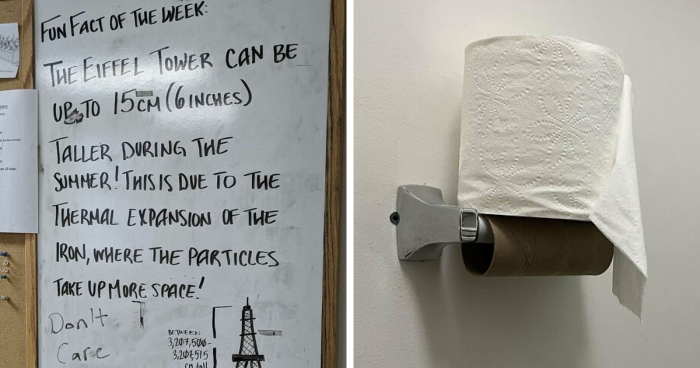 FUN FACT OF THE WEEK:
THE EIFFEL TOWER CAN BE
UP TO 15CM (6 INCHES)
TALLER DURING THE
SUMMER! THIS IS DUE TO THE
THERMAL EXPANSION OF THE
IRON, WHERE THE PARTICLES
TAKE UP MORE SPACE!
Don't
Care
BETWEEN
3,207,500-
3,207,515
cm tall